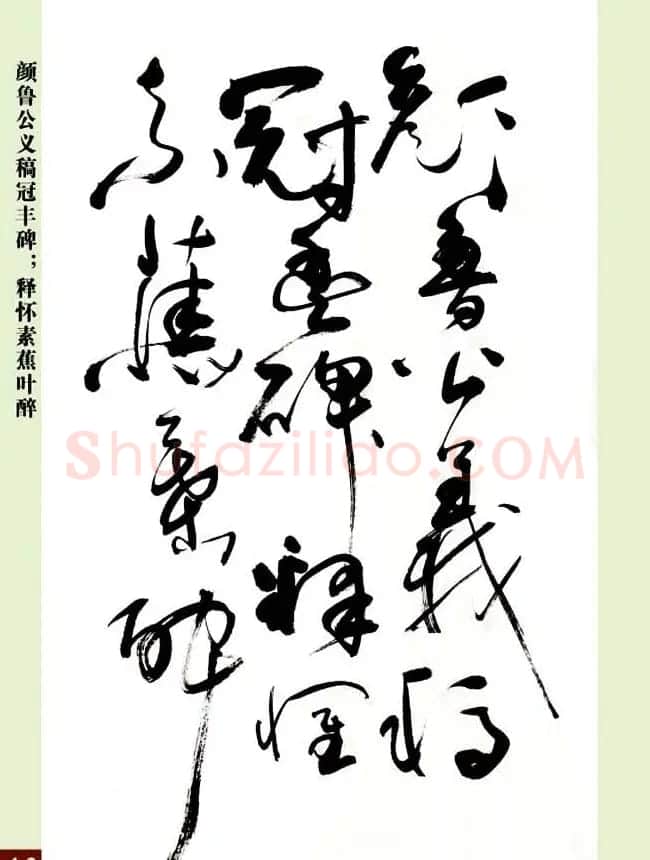 顏魯公義稿
冠豐碑釋懷
素蕉葉醉
颜鲁公义稿冠丰碑；释怀素蕉叶醉
Shufaziliao.COM